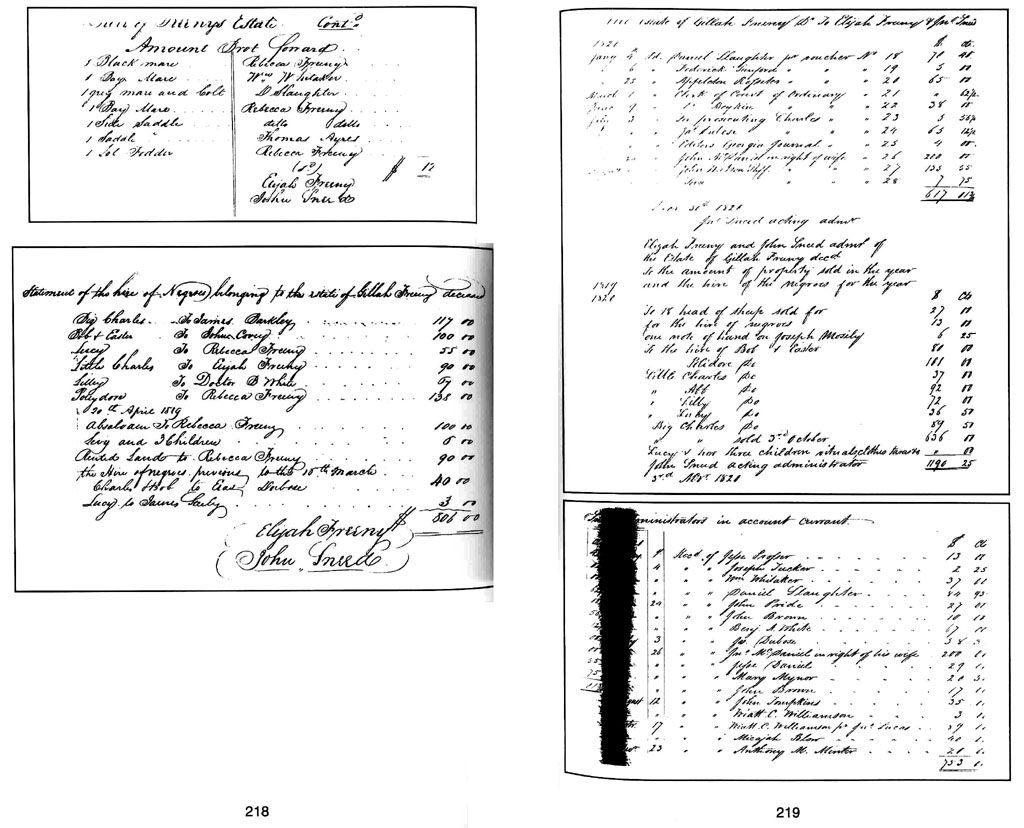 Freeny's Estate Cont.d
Amount Brot forward
1 Black mare Rebecca Freeny
1 Bay Mare W.m W Whitaker
1 grey mare and Colt D Slaughter
1 Bay Mare Rebecca Freeny
1 Side Saddle ditto ditto
1 Saddle Thomas Ayres
1 Lot Fodder Rebecca Freeny
$ 12
Elijah Freeny
John Sneed
Statement of the hire of Negroes belonging to the estate of Gillah Freeny deceased
Big Charles To James Barkley 117 00
Bob & Easter To John Covey 100 00
Lucy To Rebecca Freeny 55 00
Little Charles To Elijah Freeny 90 00
Lilley To Doctor B White
Polydore To Rebecca Freeny 138 00
20th April 1819
Absaloam To Rebecca Freeny 100 00
Levy and 3 Children 00
Rented Lands to Rebecca Freeny 90 00
the Hire of negroes previous to the 10th March
Charles & Bob to Dubose 40 00
Lucy to James 3 00
$ 806 00
Elijah Freeny
John Sneed
218
The Estate of Gillah Freeny Dr To Elijah Freeny & Jno Sneed
1820 $ cts
Jany 4th Pd. Daniel Slaughter pr voucher No 18 70
" 6 " " " 19 5 00
" 25 " " " 20 65 00
March 1 " Clerk of Court of Ordinary " 21
June 9 " Boykin " " 22 38
3 " In prosecuting Charles " 23 3
" Jas Dubose " " 24 63
" Editors Georgia Journal " 25 4 00
" John McDaniel in right of wife " 26 200 00
" John " " 27 133 55
" " 28 7 75
617
Decr 31st 1820
Jno Sneed acting admr
Elijah Freeny and John Sneed admrs of
the Estate of Gillah Freeny decd
To the amount of property sold in the year
1819 and the hire of the negroes for the year
1820 $ Cts
To 18 head of sheep sold for 27 00
for the hire of negroes 13 00
one note of hand on Joseph Mosely 6 25
To the hire of Bob & Easter 80 00
Polidore Do 101 00
Little Charles Do 37 00
" Do 92 00
" Lilly Do 72 00
" Do 36 50
Big Charles Do 89 50
" " sold 3rd October 636 00
Lucy & her three children
John Sneed acting administrator 1190 25
3rd Novr 1820
administrators in account currant
$ Cts
8 Recd of Jesse Prosser 13 00
4 " " Joseph Tucker 2 25
" " " Wm Whitaker 37
" " " Daniel Slaughter
24 " " John Pride 27
" " " John Brown 10
" " " Benj A. White 67
3 " " Jas Dubose 38
26 " " Jno McDaniel in right of his wife 200
" " " Jesse Daniel 29
" " " Mary Meynor 20
" " " John Brown 17
12 " " John Tompkins 35
" " " Wiatt C. Williamson 3
17 " " Wiatt C. Williamson pr Jno Lucas 39
" " " Micajah Blow 40
23 " " Anthony M. Minter 20
753
219